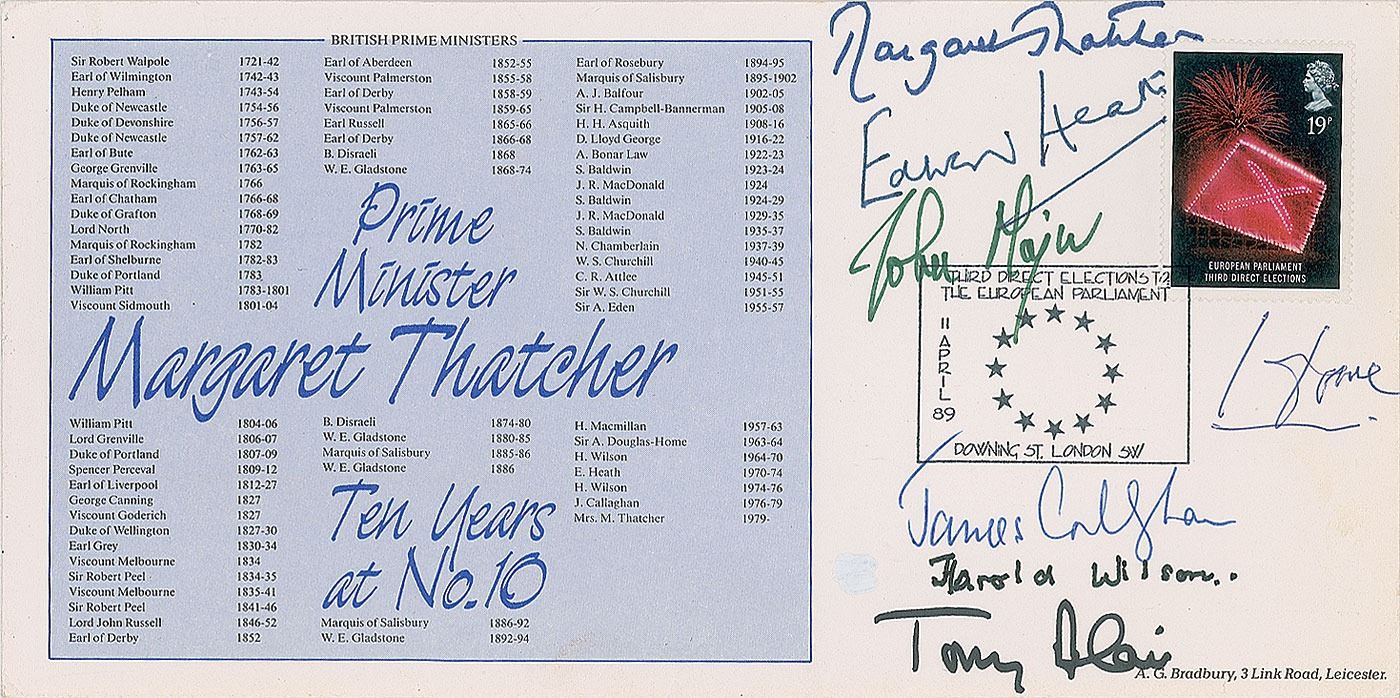 BRITISH PRIME MINISTERS
Sir Robert Walpole 1721-42
Earl of Wilmington 1742-43
Henry Pelham 1743-54
Duke of Newcastle 1754-56
Duke of Devonshire 1756-57
Duke of Newcastle 1757-62
Earl of Bute 1762-63
George Grenville 1763-65
Marquis of Rockingham 1766
Earl of Chatham 1766-68
Duke of Grafton 1768-69
Lord North 1770-82
Marquis of Rockingham 1782
Earl of Shelburne 1782-83
Duke of Portland 1783
William Pitt 1783-1801
Viscount Sidmouth 1801-04
Earl of Aberdeen 1852-55
Viscount Palmerston 1855-58
Earl of Derby 1858-59
Viscount Palmerston 1859-65
Earl Russell 1865-66
Earl of Derby 1866-68
B. Disraeli 1868
W. E. Gladstone 1868-74
Earl of Rosebury 1894-95
Marquis of Salisbury 1895-1902
A. J. Balfour 1902-05
Sir H. Campbell-Bannerman 1905-08
H. H. Asquith 1908-16
D. Lloyd George 1916-22
A. Bonar Law 1922-23
S. Baldwin 1923-24
J. R. MacDonald 1924
S. Baldwin 1924-29
J. R. MacDonald 1929-35
S. Baldwin 1935-37
N. Chamberlain 1937-39
W. S. Churchill 1940-45
C. R. Attlee 1945-51
Sir W. S. Churchill 1951-55
Sir A. Eden 1955-57
Prime
Minister
Margaret Thatcher
William Pitt 1804-06
Lord Grenville 1806-07
Duke of Portland 1807-09
Spencer Perceval 1809-12
Earl of Liverpool 1812-27
George Canning 1827
Viscount Goderich 1827
Duke of Wellington 1827-30
Earl Grey 1830-34
Viscount Melbourne 1834
Sir Robert Peel 1834-35
Viscount Melbourne 1835-41
Sir Robert Peel 1841-46
Lord John Russell 1846-52
Earl of Derby 1852
B. Disraeli 1874-80
W. E. Gladstone 1880-85
Marquis of Salisbury 1885-86
W. E. Gladstone 1886
Ten Years
at No.10
Marquis of Salisbury 1886-92
W. E. Gladstone 1892-94
H. Macmillan 1957-63
Sir A. Douglas-Home 1963-64
H. Wilson 1964-70
E. Heath 1970-74
H. Wilson 1974-76
J. Callaghan 1976-79
Mrs. M. Thatcher 1979-
Margaret Thatcher
Edward Heath
John Major
19P
EUROPEAN PARLIAMENT
THIRD DIRECT ELECTIONS
THIRD DIRECT ELECTIONS TO
THE EUROPEAN PARLIAMENT
11 APRIL 89
DOWNING ST. LONDON SW1
Home
James Callaghan
Harold Wilson..
Tony Blair
A. G. Bradbury, 3 Link Road, Leicester.